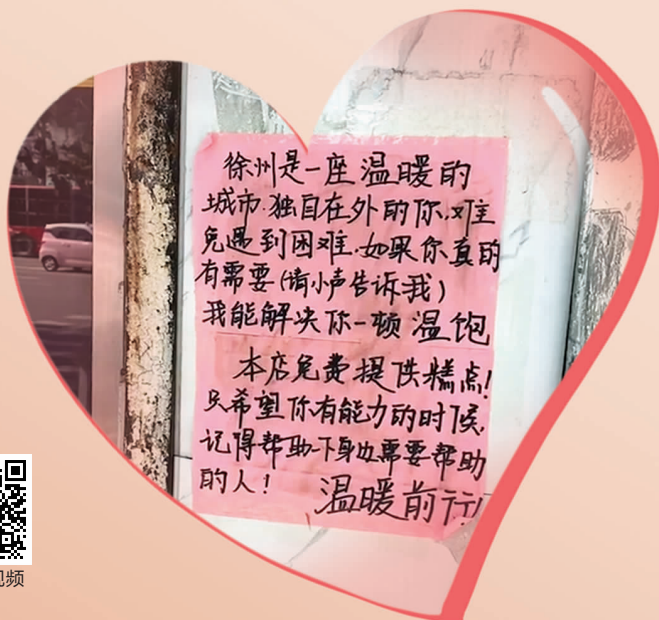 徐州是一座温暖的
城市.独自在外的你,难
免遇到困难.如果你真的
有需要(请小声告诉我)
我能解决你一顿温饱
本店免费提供糕点!
只希望你有能力的时候,
记得帮助一下身边需要帮助
的人!
温暖前行!
视频